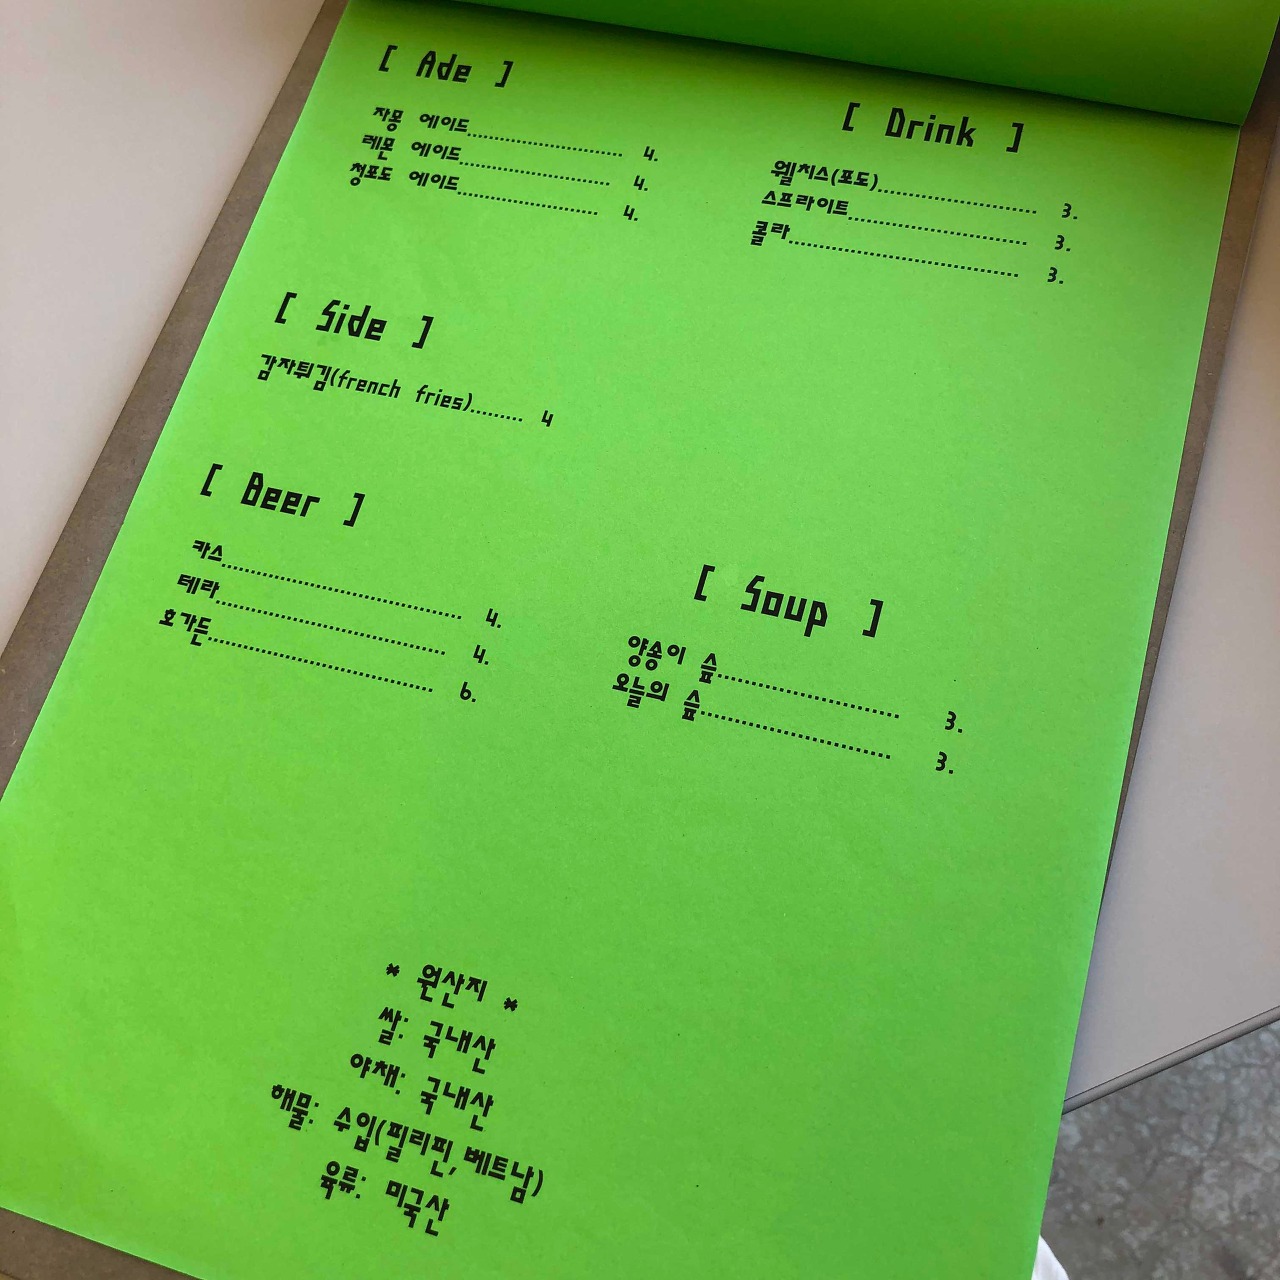 [ Ade ]
자몽 에이드........................ 4.
레몬 에이드........................ 4.
청포도 에이드...................... 4.
[ Drink ]
웰치스(포도)........................ 3.
스프라이트.......................... 3.
콜라.................................... 3.
[ Side ]
감자튀김(french fries)......... 4
[ Beer ]
카스...................................... 4.
테라.................................... 4.
호가든.................................. 6.
[ Soup ]
양송이 숲............................ 3.
오늘의 숲............................. 3.
* 원산지 *
쌀: 국내산
야채: 국내산
해물: 수입(필리핀,베트남)
육류: 미국산